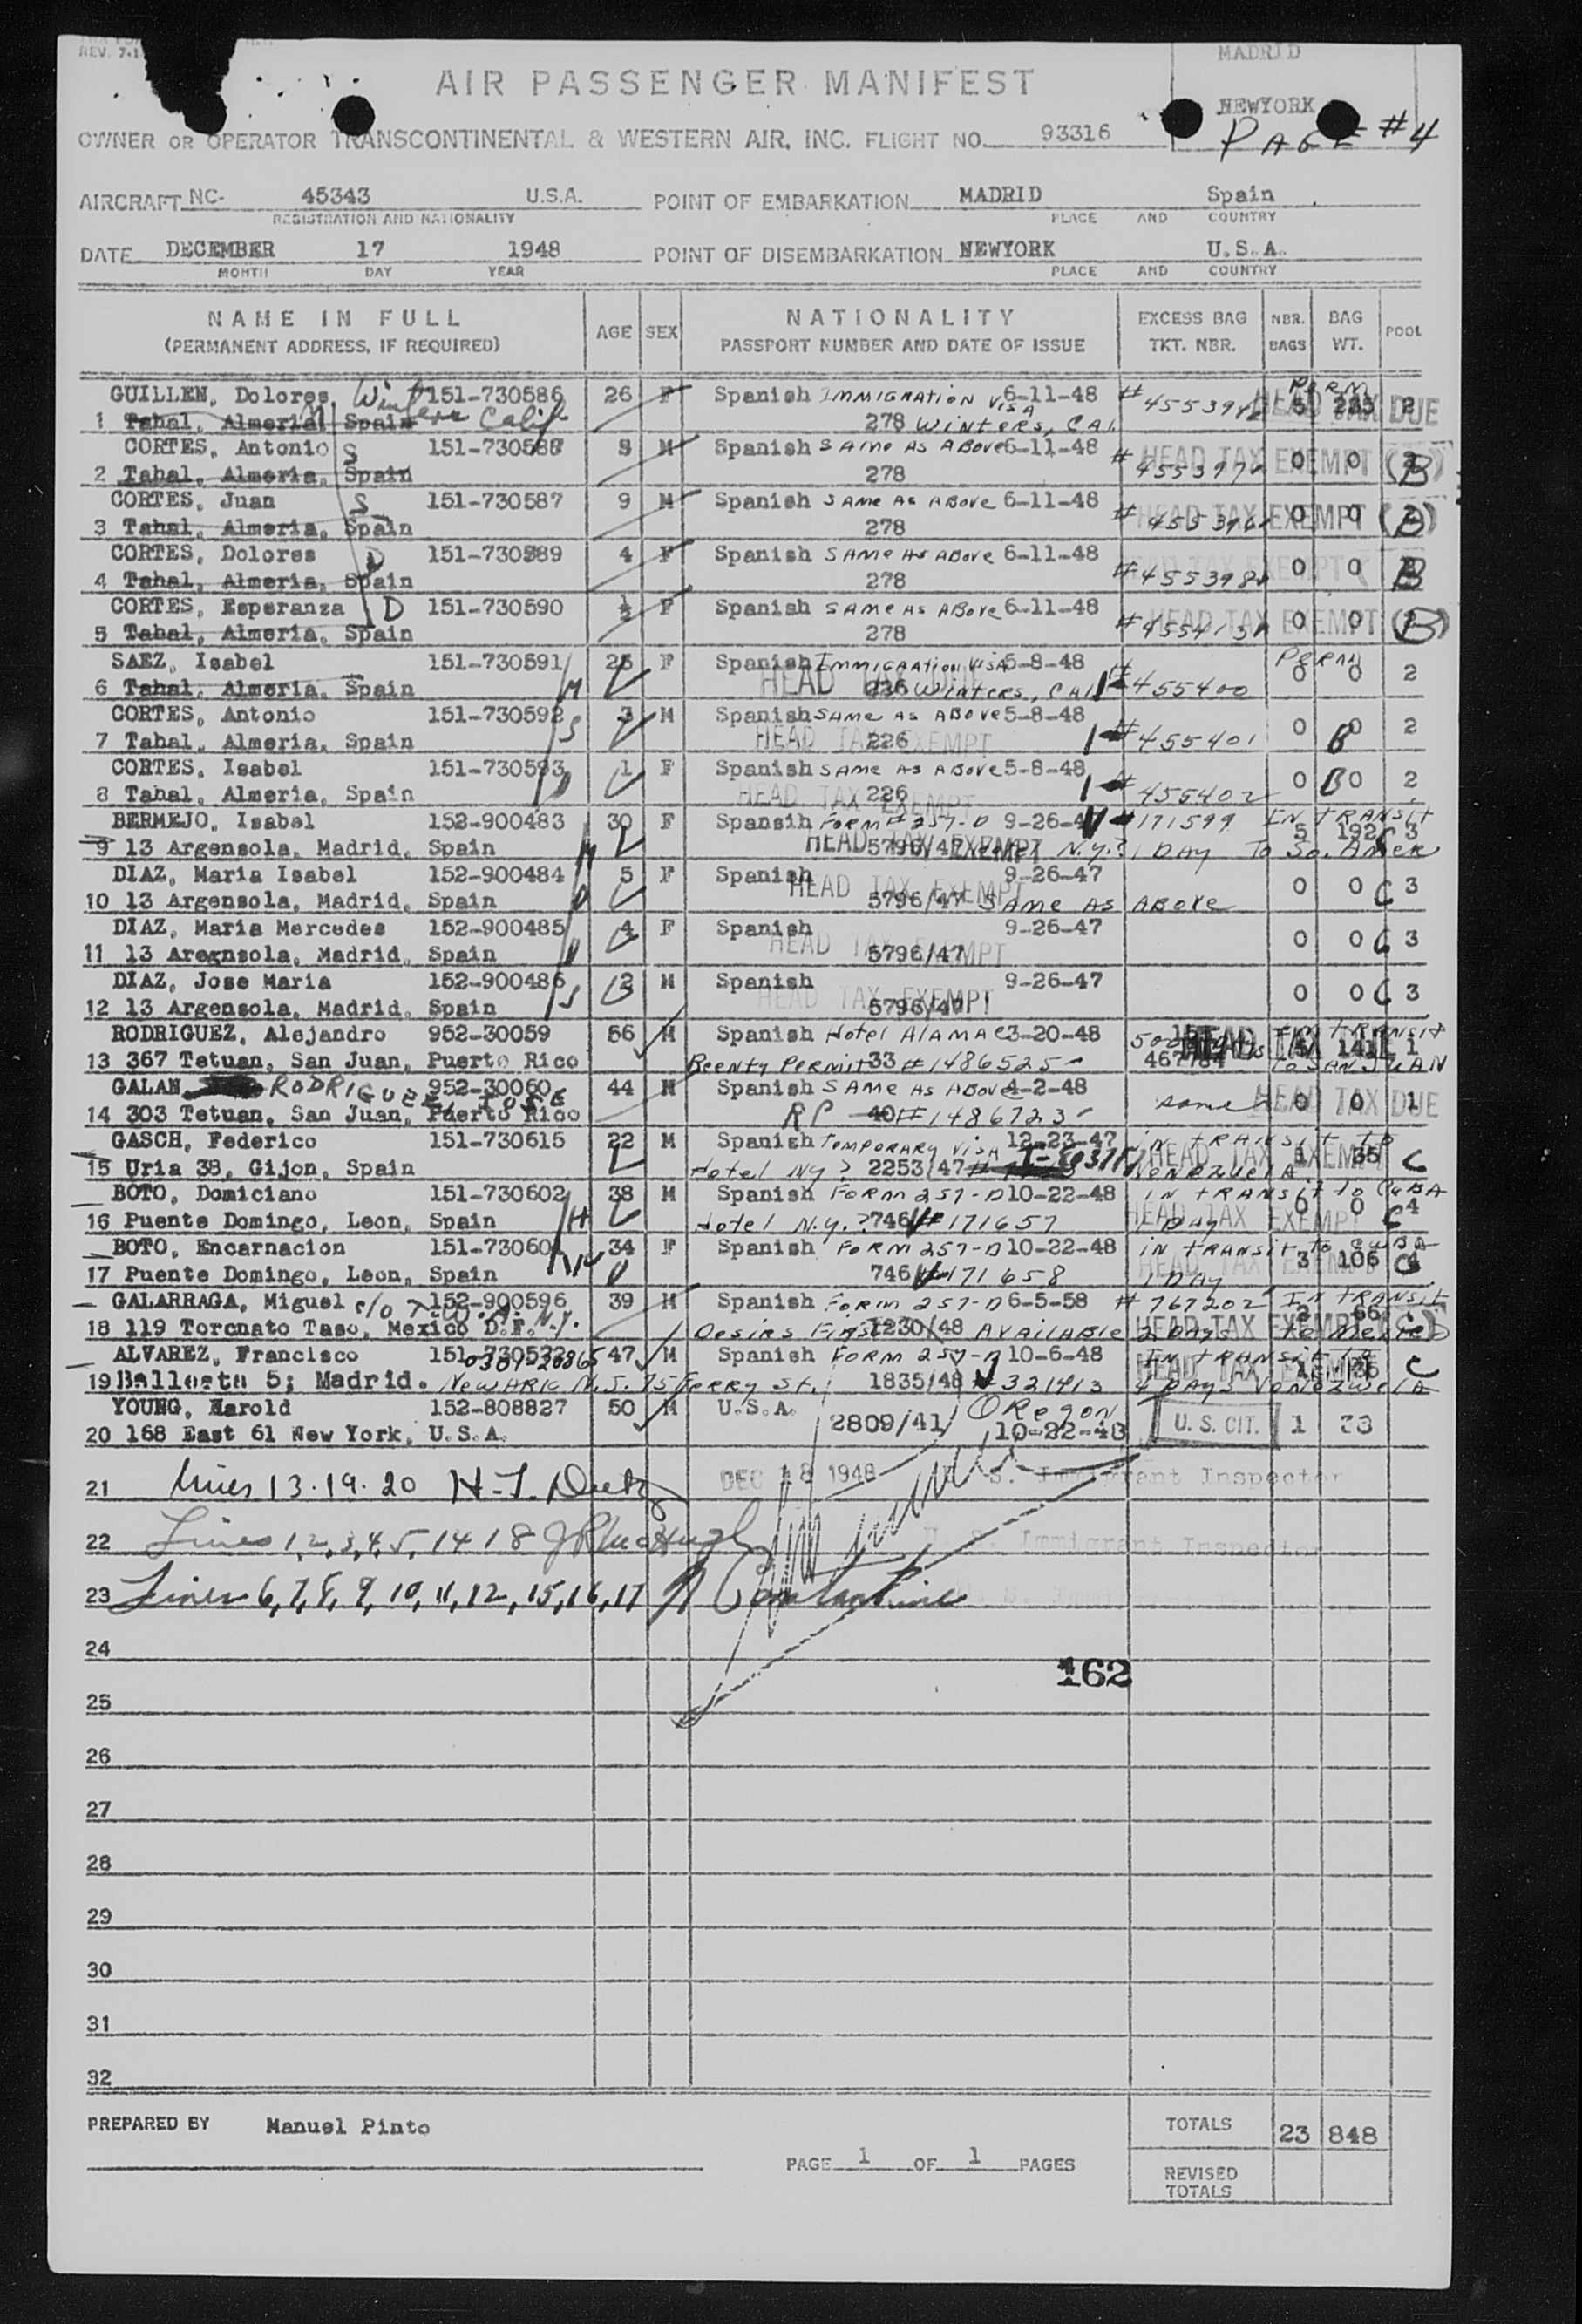 REV. 7-1
MADRID
AIR PASSENGER MANIFEST
NEWYORK
PAGE #4
OWNER OR OPERATOR TRANSCONTINENTAL & WESTERN AIR, INC. FLIGHT NO. 93316
AIRCRAFT NC- 45343 U.S.A. POINT OF EMBARKATION MADRID Spain
REGISTRATION AND NATIONALITY PLACE AND COUNTRY
DATE DECEMBER 17 1948 POINT OF DISEMBARKATION NEWYORK U.S.A.
MONTH DAY YEAR PLACE AND COUNTRY
NAME IN FULL AGE SEX NATIONALITY EXCESS BAG NBR. BAG POOL
(PERMANENT ADDRESS, IF REQUIRED) PASSPORT NUMBER AND DATE OF ISSUE TKT. NBR. BAGS WT.
GUILLEN, Dolores, 151-730586 26 F Spanish IMMIGRATION VISA 6-11-48 PERM
1 Tahal, Almeria, Spain Winters Calif 278 WINTERS, CAL. HEAD TAX DUE 5 2
CORTES, Antonio S 151-730588 M Spanish SAME AS ABOVE 6-11-48
2 Tahal, Almeria, Spain 278 HEAD TAX EXEMPT (B) 0 0
CORTES, Juan S 151-730587 9 M Spanish SAME AS ABOVE 6-11-48
3 Tahal, Almeria, Spain 278 HEAD TAX EXEMPT (B) 0 0
CORTES, Dolores D 151-730589 4 F Spanish SAME AS ABOVE 6-11-48
4 Tahal, Almeria, Spain 278 #455398 HEAD TAX EXEMPT B 0 0
CORTES, Esperanza D 151-730590 ½ F Spanish SAME AS ABOVE 6-11-48
5 Tahal, Almeria, Spain 278 #455413 HEAD TAX EXEMPT (B) 0 0
SAEZ, Isabel 151-730591 M F Spanish IMMIGRATION VISA 5-8-48 PERM
6 Tahal, Almeria, Spain HEAD 226 WINTERS, CAL #455400 0 0 2
CORTES, Antonio 151-730592 S 3 M Spanish SAME AS ABOVE 5-8-48
7 Tahal, Almeria, Spain HEAD TAX EXEMPT 226 #455401 0 0 B 2
CORTES, Isabel 151-730593 D 1 F Spanish SAME AS ABOVE 5-8-48
8 Tahal, Almeria, Spain HEAD TAX EXEMPT 226 #455402 0 B 0 2
BERMEJO, Isabel 152-900483 30 F Spansih FORM #257-D 9-26-47 #171599 IN TRANSIT
9 13 Argensola, Madrid, Spain M HEAD TAX EXEMPT 5796/47 N.Y.? 1 DAY TO SO. AMER 5 192 C 3
DIAZ, Maria Isabel 152-900484 5 F Spanish 9-26-47
10 13 Argensola, Madrid, Spain D HEAD TAX EXEMPT 5796/47 SAME AS ABOVE 0 0 C 3
DIAZ, Maria Mercedes 152-900485 4 F Spanish 9-26-47
11 13 Aregnsola, Madrid, Spain HEAD TAX EXEMPT 5796/47 0 0 C 3
DIAZ, Jose Maria 152-900486 S M Spanish 9-26-47
12 13 Argensola, Madrid, Spain HEAD TAX EXEMPT 5796/47 0 0 C 3
RODRIGUEZ, Alejandro 952-30059 56 M Spanish Hotel ALAMAC 3-20-48 IN TRANSIT
13 367 Tetuan, San Juan, Puerto Rico Reenty Permit 33 #1486525 467784 HEAD TAX TO SAN JUAN 1
GALAN RODRIGUEZ, JOSE 952-30060 44 M Spanish SAME AS ABOVE 4-2-48
14 303 Tetuan, San Juan, Puerto Rico RP 40 #1486723 same HEAD TAX DUE 0 0 1
GASCH, Federico 151-730615 22 M Spanish TEMPORARY VISA 12-23-47 IN TRANSIT TO
15 Uria 38, Gijon, Spain Hotel NY? 2253/47 VENEZUELA HEAD TAX EXEMPT C
BOTO, Domiciano 151-730602 38 M Spanish FORM 257-D 10-22-48 IN TRANSIT TO CUBA
16 Puente Domingo, Leon, Spain H Hotel N.Y.? 746 #171657 DAY HEAD TAX EXEMPT 0 0 C 4
BOTO, Encarnacion 34 F Spanish FORM 257-D 10-22-48 IN TRANSIT TO CUBA
17 Puente Domingo, Leon, Spain W 746 171658 1 DAY HEAD TAX EXEMPT 3 106 C
GALARRAGA, Miguel c/o T.W.A. N.Y. 152-900596 39 M Spanish FORM 257-D 6-5-58 #767202 IN TRANSIT
18 119 Torcnato Taso, Mexico D.F. Desirs First 1230/48 AVAILABLE 2 Days to Mexico HEAD TAX EXEMPT (C) 66
ALVAREZ, Francisco 0301-20865 47 M Spanish FORM 257-D 10-6-48 IN TRANSIT TO
19 Ballesta 5; Madrid. NEWARK N.J. 75 Ferry St. 1835/48 321413 4 DAYS VENEZUELA HEAD TAX EXEMPT C
YOUNG, Harold 152-808827 50 M U.S.A. OREGON
20 168 East 61 New York, U.S.A. 2809/41 10-22-48 U.S. CIT. 1 33
21 Lines 13.19.20 DEC 18 1948 U. S. Immigrant Inspector
22 Lines 1,2,3,4,5,14 18 U. S. Immigrant Inspector
23 Lines 6,7,8,9,10,11,12,15,16,17 A Constantine
24
162
25
26
27
28
29
30
31
32
PREPARED BY Manuel Pinto TOTALS 23 848
PAGE 1 OF 1 PAGES
REVISED TOTALS